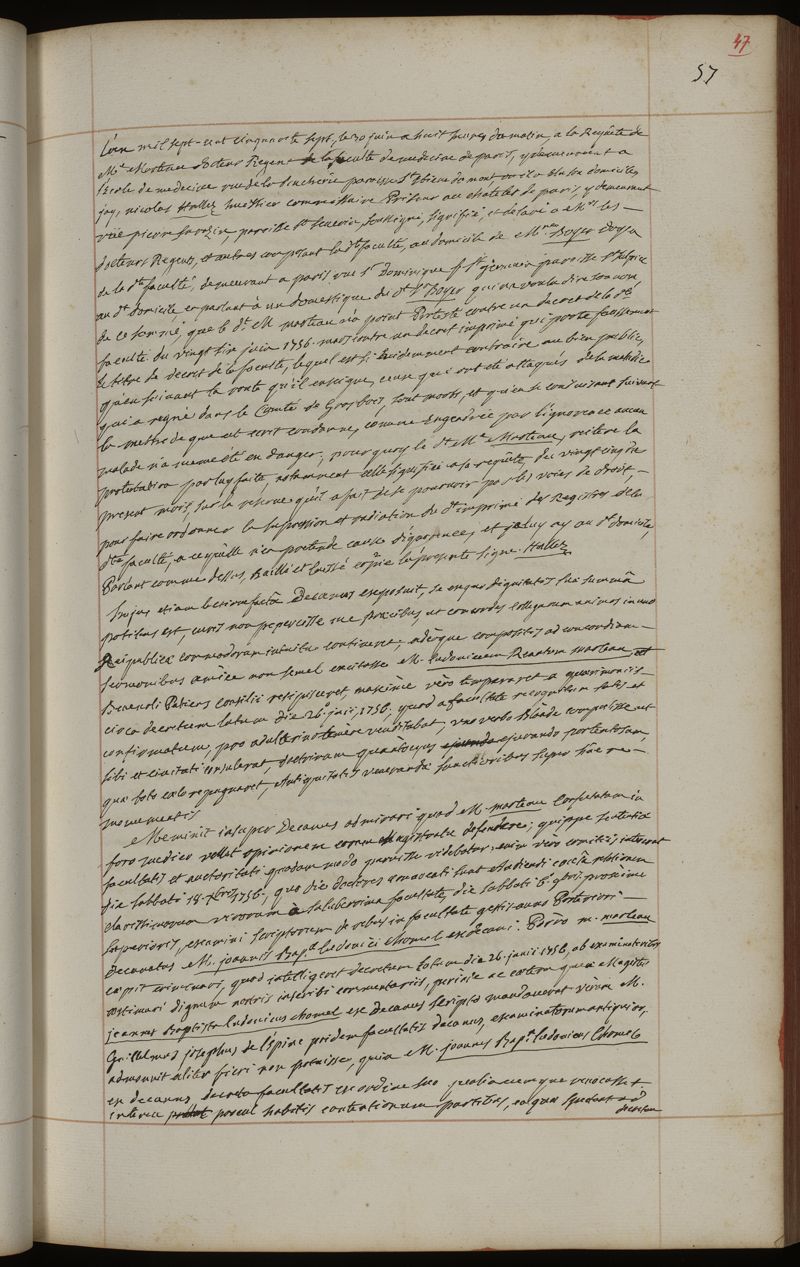 47
57
L'an mil sept-cent cinquante sept, le 30 juin a huit heures du matin, a la Requête de
Me Marteau docteur Regent de la faculté de medecine de paris, y demeurant a
l'école de medecine rue de la Bucherie paroisse St Etienne du mont il a elu son domicile,
jay, nicolas Hallez huissier commissaire Priseur au chatelet de paris, y demeurant
rue paroisse St Severin, soussigné, signifié, et déclaré a Mrs les
docteurs Regents, et autres composant la dte faculté, au domicile de Mr Boyer Doyen
de la dte faculté, demeurant a paris rue St Dominique f. St germain paroisse St Sulpice
au dt domicile, en parlant à un domestique du dt Sr Boyer qui n'a voulu dire son nom
de ce sommé, que le dt M marteau n'a point Protesté contre un decret de la dte
faculté du vingt six juin 1756. mais contre un decret imprimé qui porte faussement
le titre de decret de la faculté, lequel est si évidemment contraire au bien public,
qu'en suivant la route qu'il enseigne, ceux qui ont été attaqués de la maladie
qui a regné dans le Comté de sont morts, et qu'en se conduisant suivant
la methode que cet ecrit condamne, comme Engendrée par l'ignorance aucun
malade n'a meme été en danger, pourquoy le dt Me Marteau, reitere la
protestation par luy faite, notamment celle signifiée a sa requête, du vingt cinq du
present mois, sur la reserve qu'il a fait de se pourvoir par les voies de droit,
pour faire ordonner la supression et radiation du dt imprimé des Registres de la
dte faculté, a ce qu'elle n'en pretende cause d'ignorance, et je luy ay au dt domicile,
Parlant comme dessus, Baillé et laissé copie la presente signé. Hallez
Hujus etiam lectione factâ Decanus exposuit, se in quâ dignitatis suæ summâ
positus est, curis non pepercisse nec precibus, ut concordes collegarum animos in unum
Reipublicæ commodorum intuitu contineret, adeoque compositis ad concordiam
sermonibus amicè non semel excitasse M. ludovicum Renatum marteau, ut
Benevoli Patiens consilii resipisceret, maximè vero temperaret a querimoniis
circa decretum latum die 26a junii, 1756, quod a facultate recognitum satis et
confirmatum, pro adulterino temerè venditabat, uno verbo Blandè compulisse ut
sibi et civitati consuleret, doctrinam quandocumque ejurando portentosam,
quæ toto cœlo repugnaret, Antiquitatis venerandæ sanctioribus super hac re
monumentis
Meminit insuper Decanus admirari quod M. marteau Confutatam in
foro medico vellet opinionem coram Magistratu defendere; quippe sententiæ
facultatis et auctoritati quodam modo paruisse videbatur, enim vero comitiis intererat
die sabbati 18. 7bris 1756, quo die doctores convocati sunt audiendi causâ relationem
clarissimorum virorum a saluberrima facultate, die sabbati 6. 9bri proxime
superioris, examini scriptorum de rebus in facultate gestis anno Posteriori
Decanatus M. joannis Bapt. ludovici chomel exdecani. Porro m. marteau
cœpit criminari, quod intelligeret decretum latum die 26. junii 1756, ab examinatoribus
æstimari dignum nostris inscribi commentariis, perinde ac cætera quæ Magister
joannes Baptista ludovicus chomel ex decanus scripto mandaverat verum M.
Guillelmus josephus de l'épine pridem facultatis decanus, examinatorum antiquior,
admonuit aliter fieri non potuisse, quia M. joannes Bapt. ludovicus Chomel
ex decanus, decreta facultatis ex ordine suo qualiacumque revocasset
interea procul habitis contentionum partibus, ea quæ spectant ad
decretum